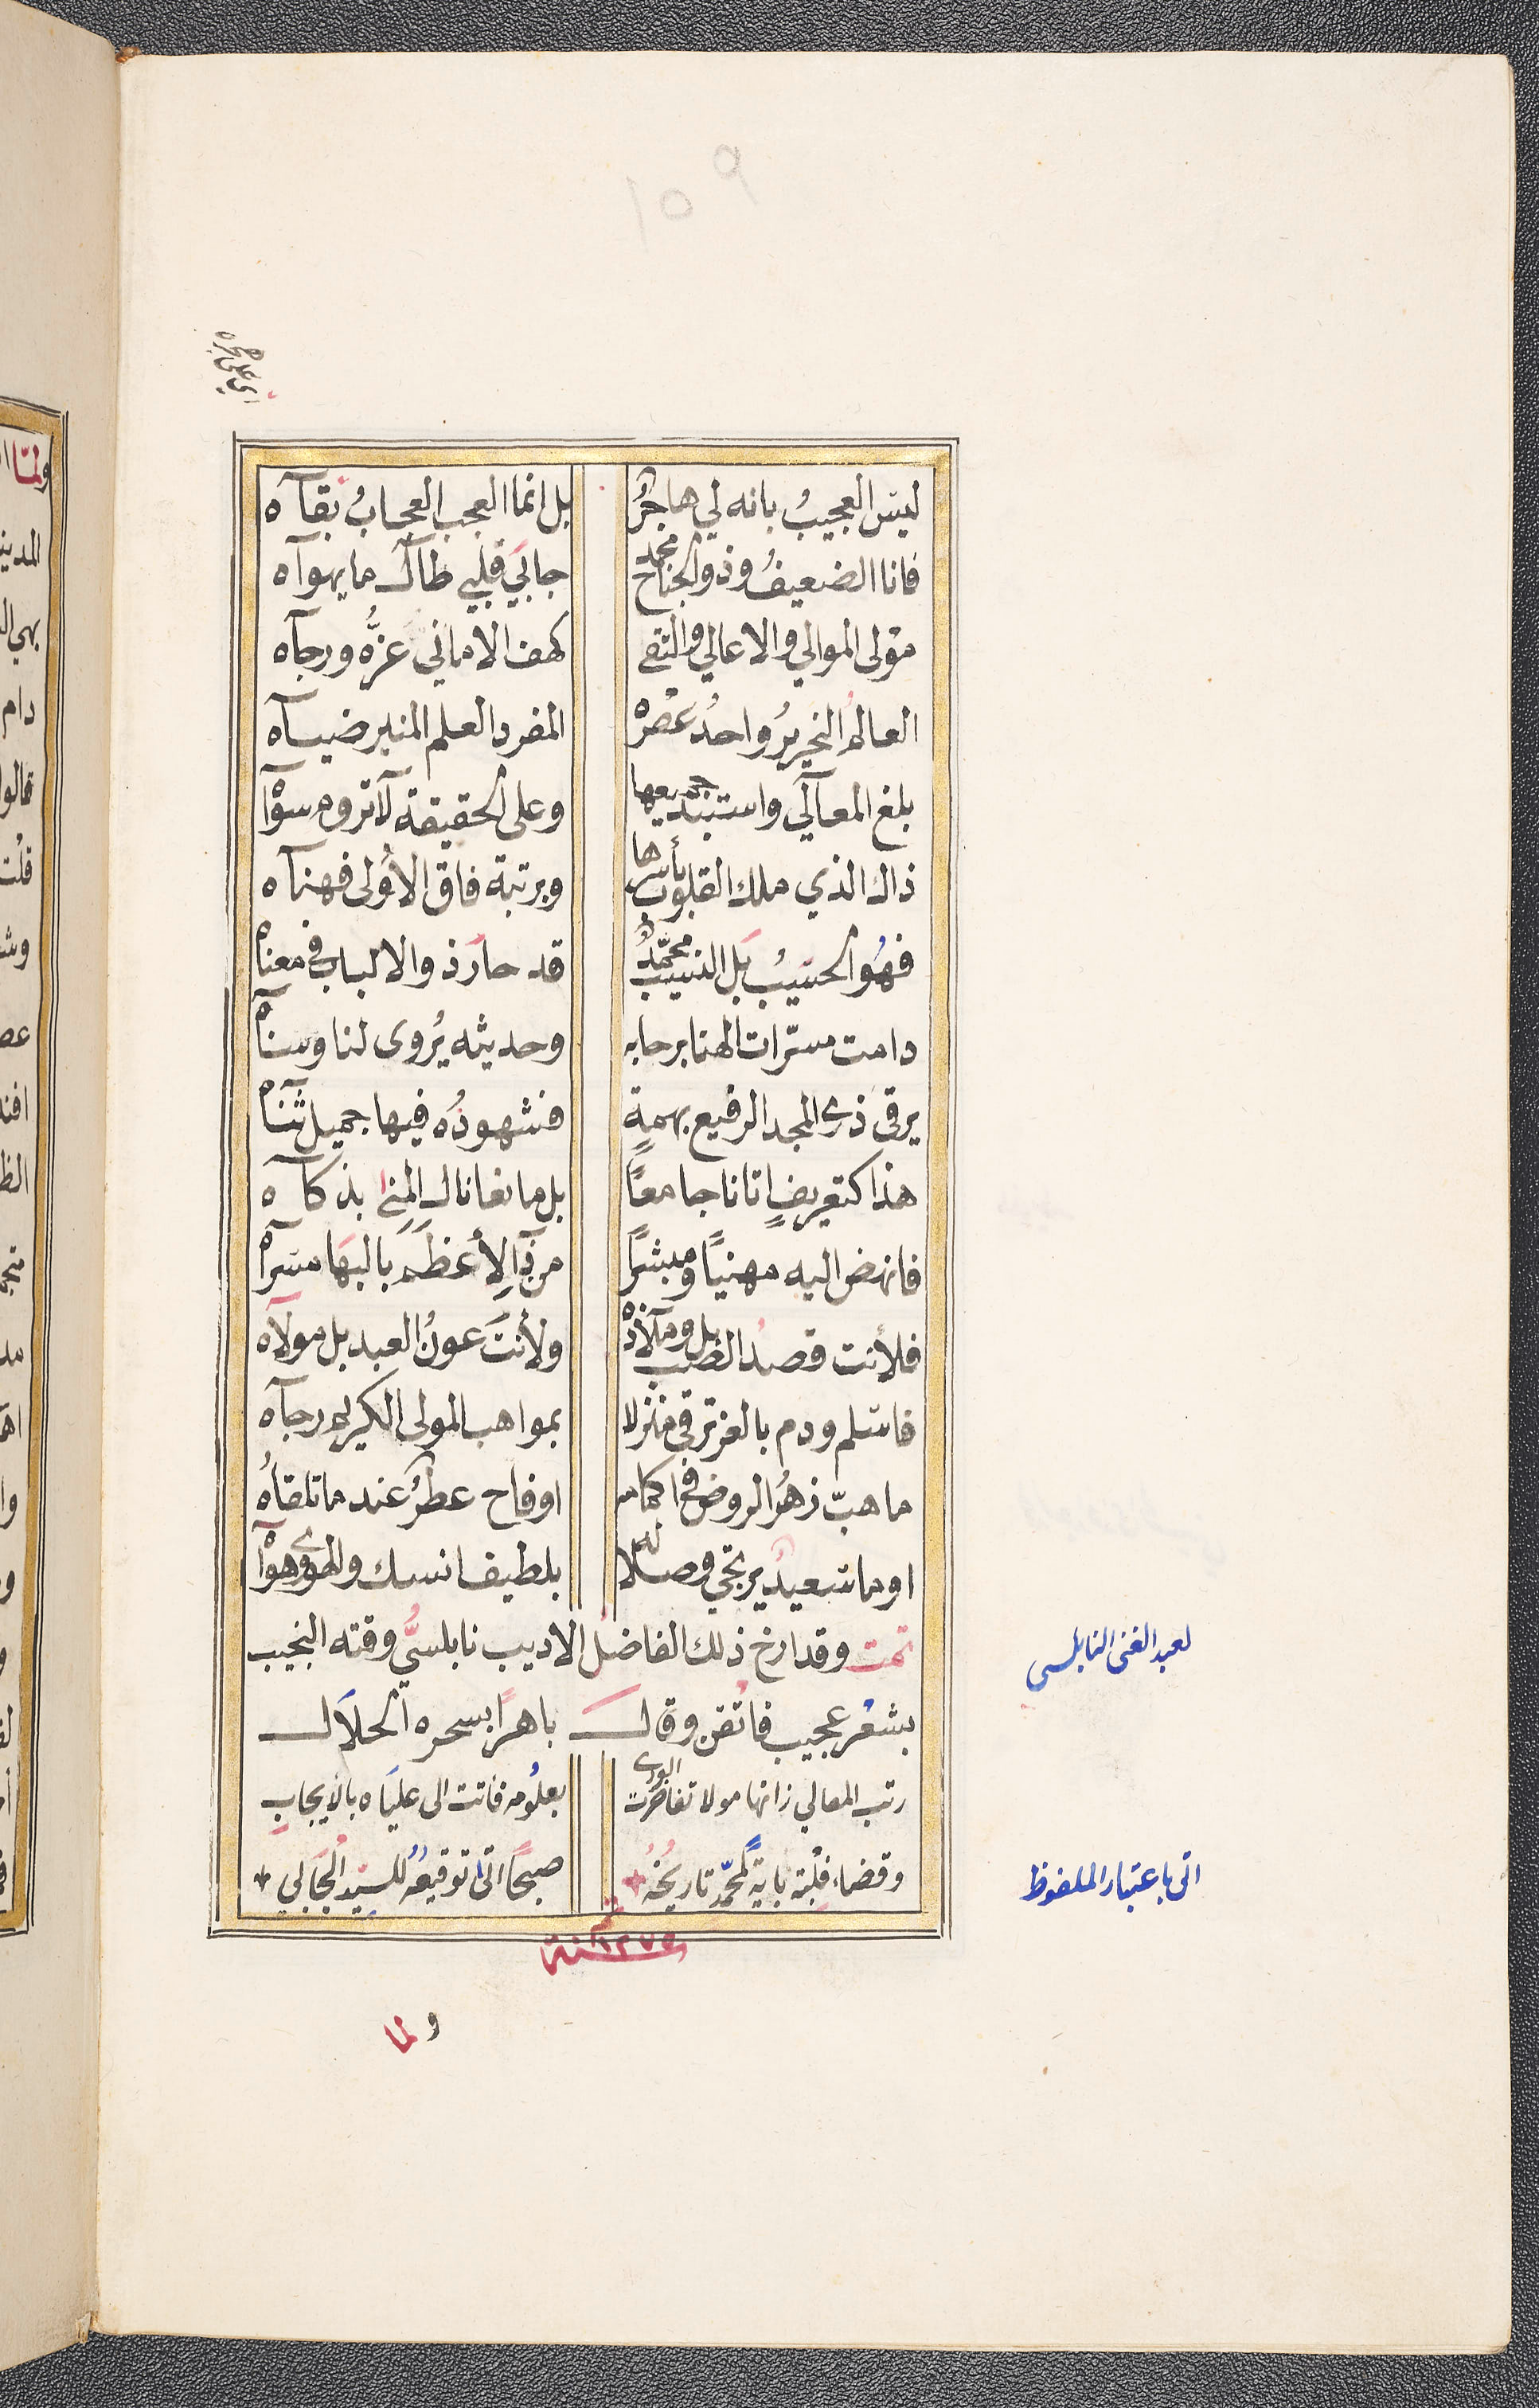 اي على هجره
ليس العجيبُ بانه لي هاجرُ بل انما العجب العجابُ بقآه
فانا الضعيفُ وذو الجناح محمد جابي قلبي طال ما يهوآه
مولى الموالي والاعالي والتقى كهف الاماني عزُّه ورجآه
العالمُ النحريرُ واحدُ عَصْرْه المفرد العلم المنير ضيآه
بلغ المعآلي واستبد جميعها وعلى الحقيقة لآ تروم سوْآه
ذاك الذي ملك القلوب بأسرها وبرتبة فاق الأُولى فهنآه
فهُو الحسيبُ بَل النسيبُ محمّدٌ قد حارَ ذو الالباب في معنآه
دامت مسرّات الهنا برحابه وحديثه يُروى لنا وسنآه
يرقى ذرى المجد الرفيع بهمةٍ فشهودُه فيها جميل ثنآه
هذا كتعريفٍ اتانا جامعًا بل مانعا نال المنى بذكآه
فانهض اليه مهنيًا ومبشرًا من ذا الأعظَم بالبهَا مسرآه
فلأنت قصدُ الصب بل وملآذْه ولأنتَ عونُ العبد بل مولآه
فاسلم ودم بالعز ترقى منزلا بمواهب المولى الكريم رجآه
ما هبّ زهرُ الروض في اكمامه او فاح عطرٌ عند ما تلقاهُ
او ما سعيدٌ يرتجي وصلا له بلطيف انسك والهوى هوْآه
تمت وقد ارخ ذلك الفاضلُ الاديب نابلسيُّ وقته النجيب
لعبد الغنى النابلسى
بشعْر عجيب فاتْقن وقال باهرًا بسحره الحلآل
رتب المعالي زانها مولا تفاخرت الورى بعلُومه فاتت الى عليَاه بالأيجابِ
وقضاء قبلته باية لمحمّد تاريخُهُ صبحًا اتى توقيعُه للسيّد الجَابي
اتى باعتبار الملفوظ
سنة ١٢٧٥
ولما